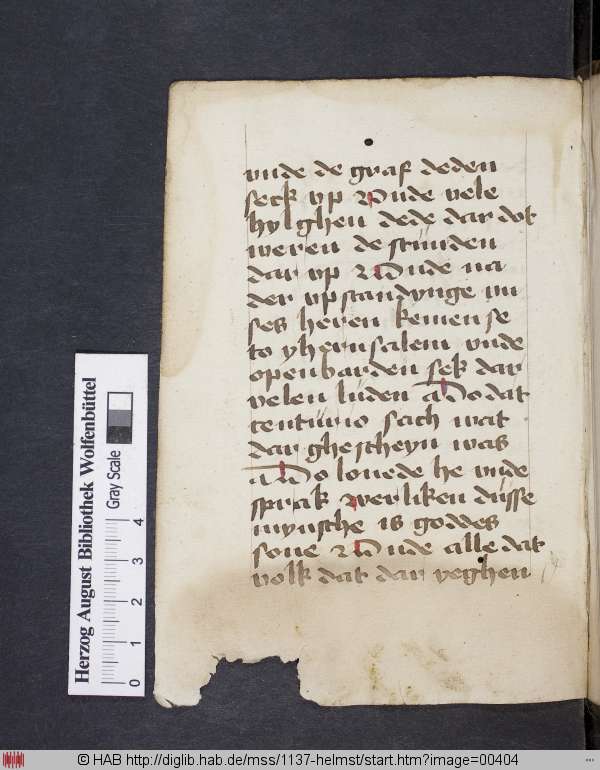 vnde de graf deden
seck vp vnde vele
hylghen dede dar dot
weren de stunden
dar vp Vnde na
der vpstandynge vn
ses heren kemen se
to yherusalem vnde
openbarden sek dar
velen luden Do dat
centurio sach wat
dar ghescheyn was
Do louede he vnde
sprak werliken dusse
mynsche is goddes
sone Vnde alle dat
volk dat dar yeghen
Herzog August Bibliothek Wolfenbüttel
Gray Scale
0 1 2 3 4
© HAB http://diglib.hab.de/mss/1137-helmst/start.htm?image=00404